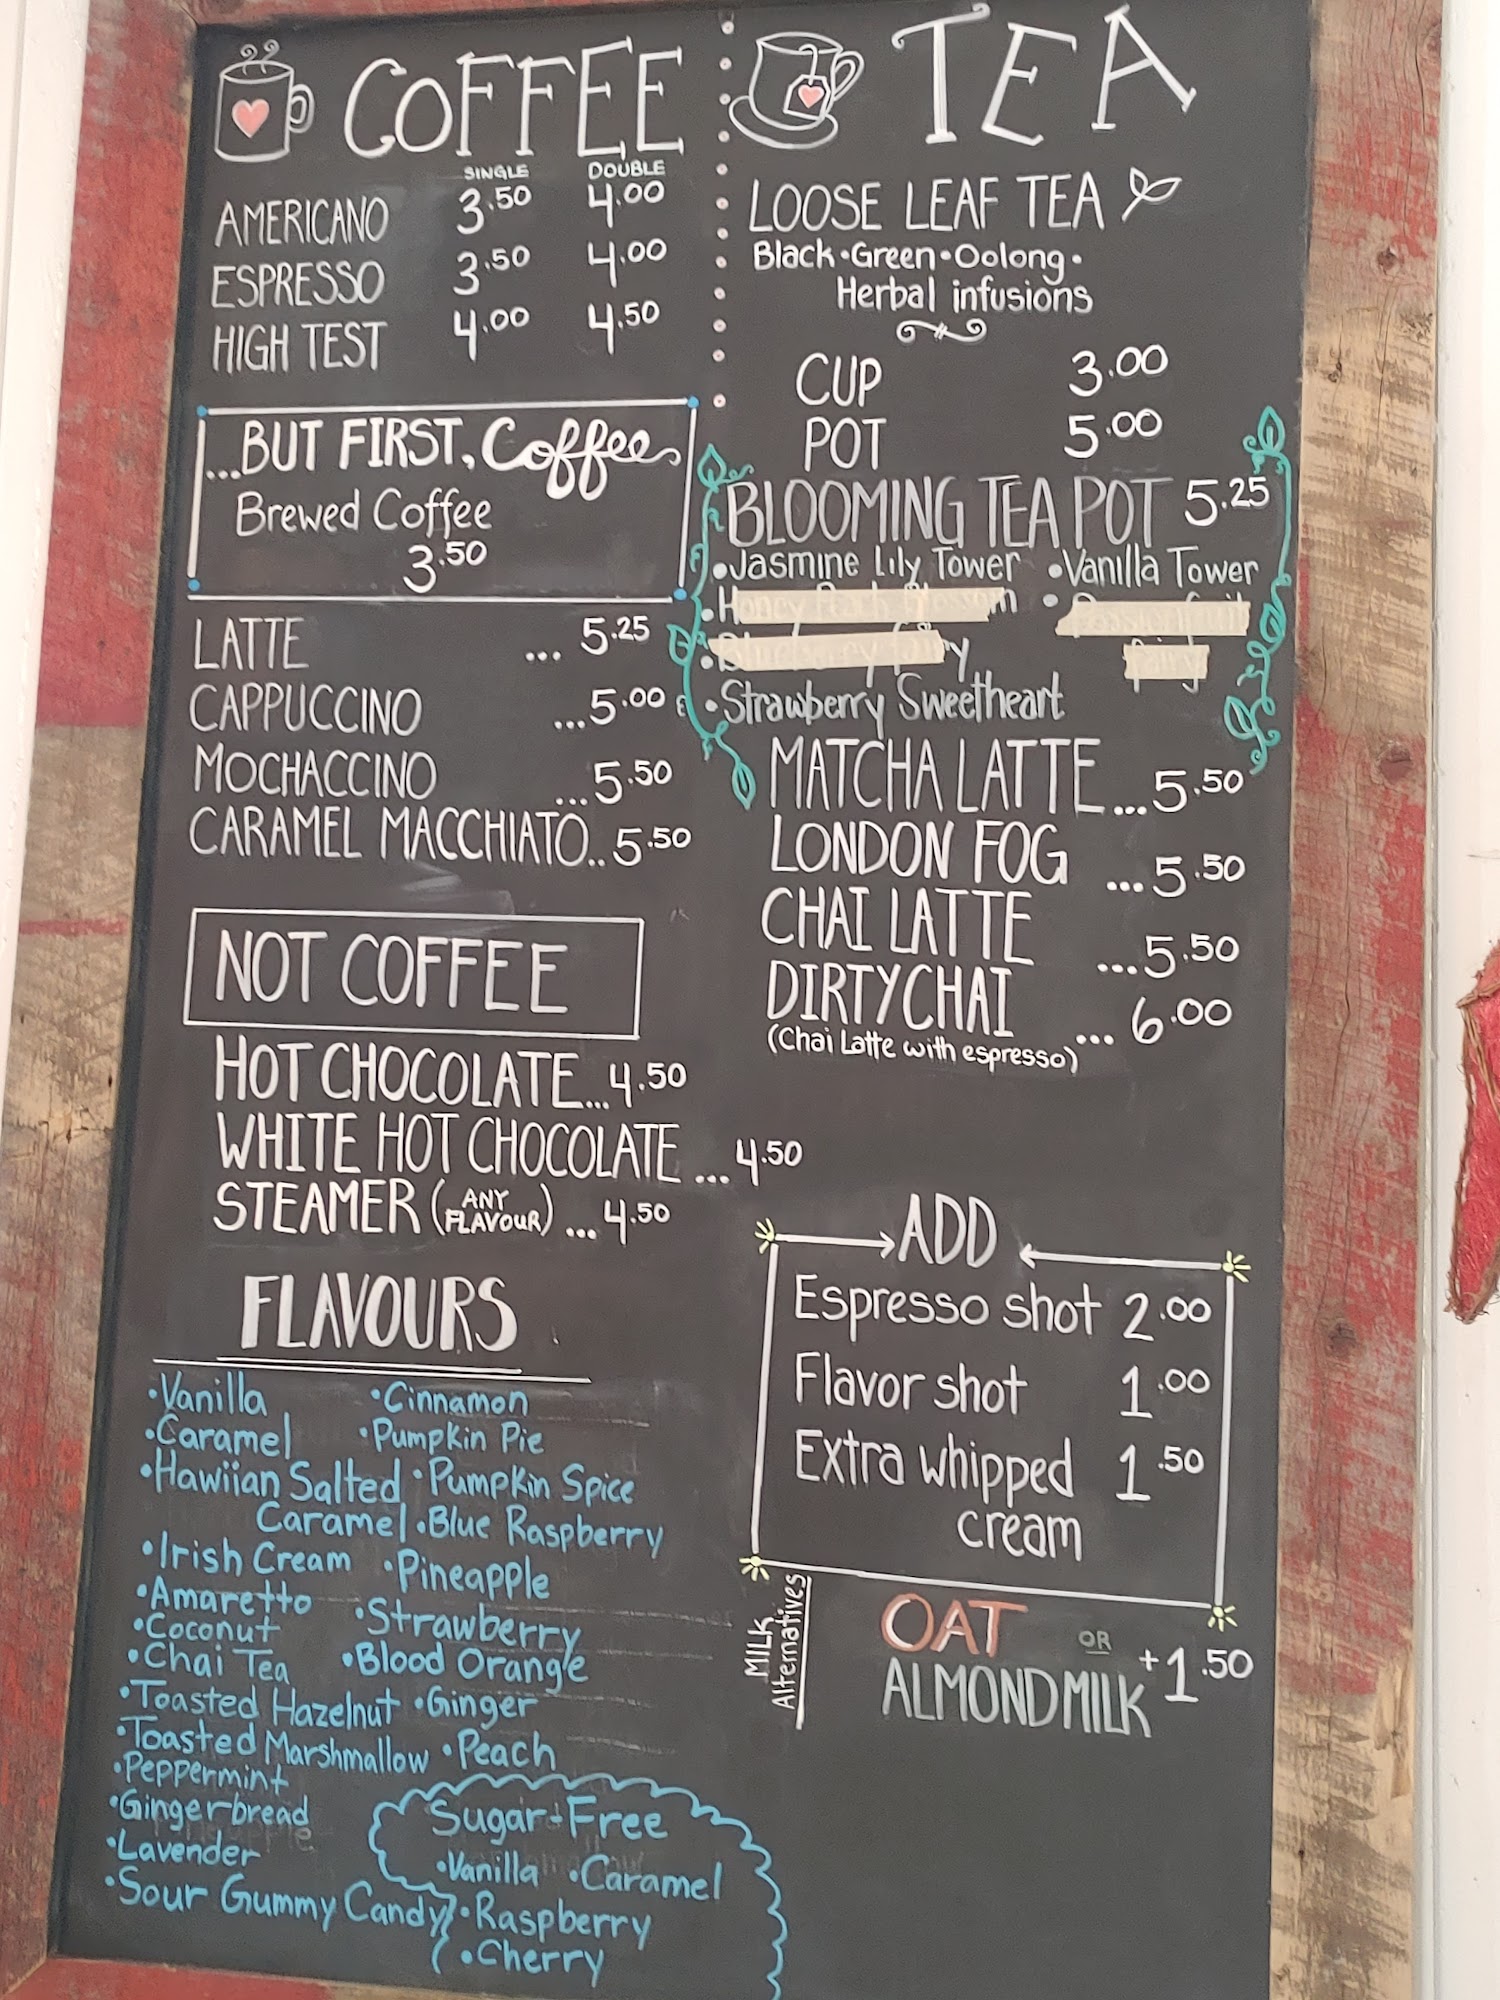 COFFEE
SINGLE DOUBLE
AMERICANO 3.50 4.00
ESPRESSO 3.50 4.00
HIGH TEST 4.00 4.50
...BUT FIRST, Coffee
Brewed Coffee
3.50
LATTE ... 5.25
CAPPUCCINO ...5.00
MOCHACCINO ...5.50
CARAMEL MACCHIATO..5.50
NOT COFFEE
HOT CHOCOLATE...4.50
WHITE HOT CHOCOLATE ...4.50
STEAMER (ANY FLAVOUR) ...4.50
FLAVOURS
•Vanilla •Cinnamon
•Caramel •Pumpkin Pie
•Hawiian Salted •Pumpkin Spice
Caramel •Blue Raspberry
•Irish Cream •Pineapple
•Amaretto •Strawberry
•Coconut
•Chai Tea •Blood Orange
•Toasted Hazelnut •Ginger
•Toasted Marshmallow •Peach
•Peppermint
•Gingerbread
•Lavender
•Sour Gummy Candy
Sugar-Free
•Vanilla •Caramel
•Raspberry
•Cherry
TEA
LOOSE LEAF TEA
Black•Green•Oolong•
Herbal infusions
CUP 3.00
POT 5.00
BLOOMING TEA POT 5.25
•Jasmine Lily Tower •Vanilla Tower
•Strawberry Sweetheart
MATCHA LATTE...5.50
LONDON FOG ...5.50
CHAI LATTE ...5.50
DIRTY CHAI ...6.00
(Chai Latte with espresso)
ADD
Espresso shot 2.00
Flavor shot 1.00
Extra whipped 1.50
cream
MILK
Alternatives
OAT OR
ALMOND MILK +1.50